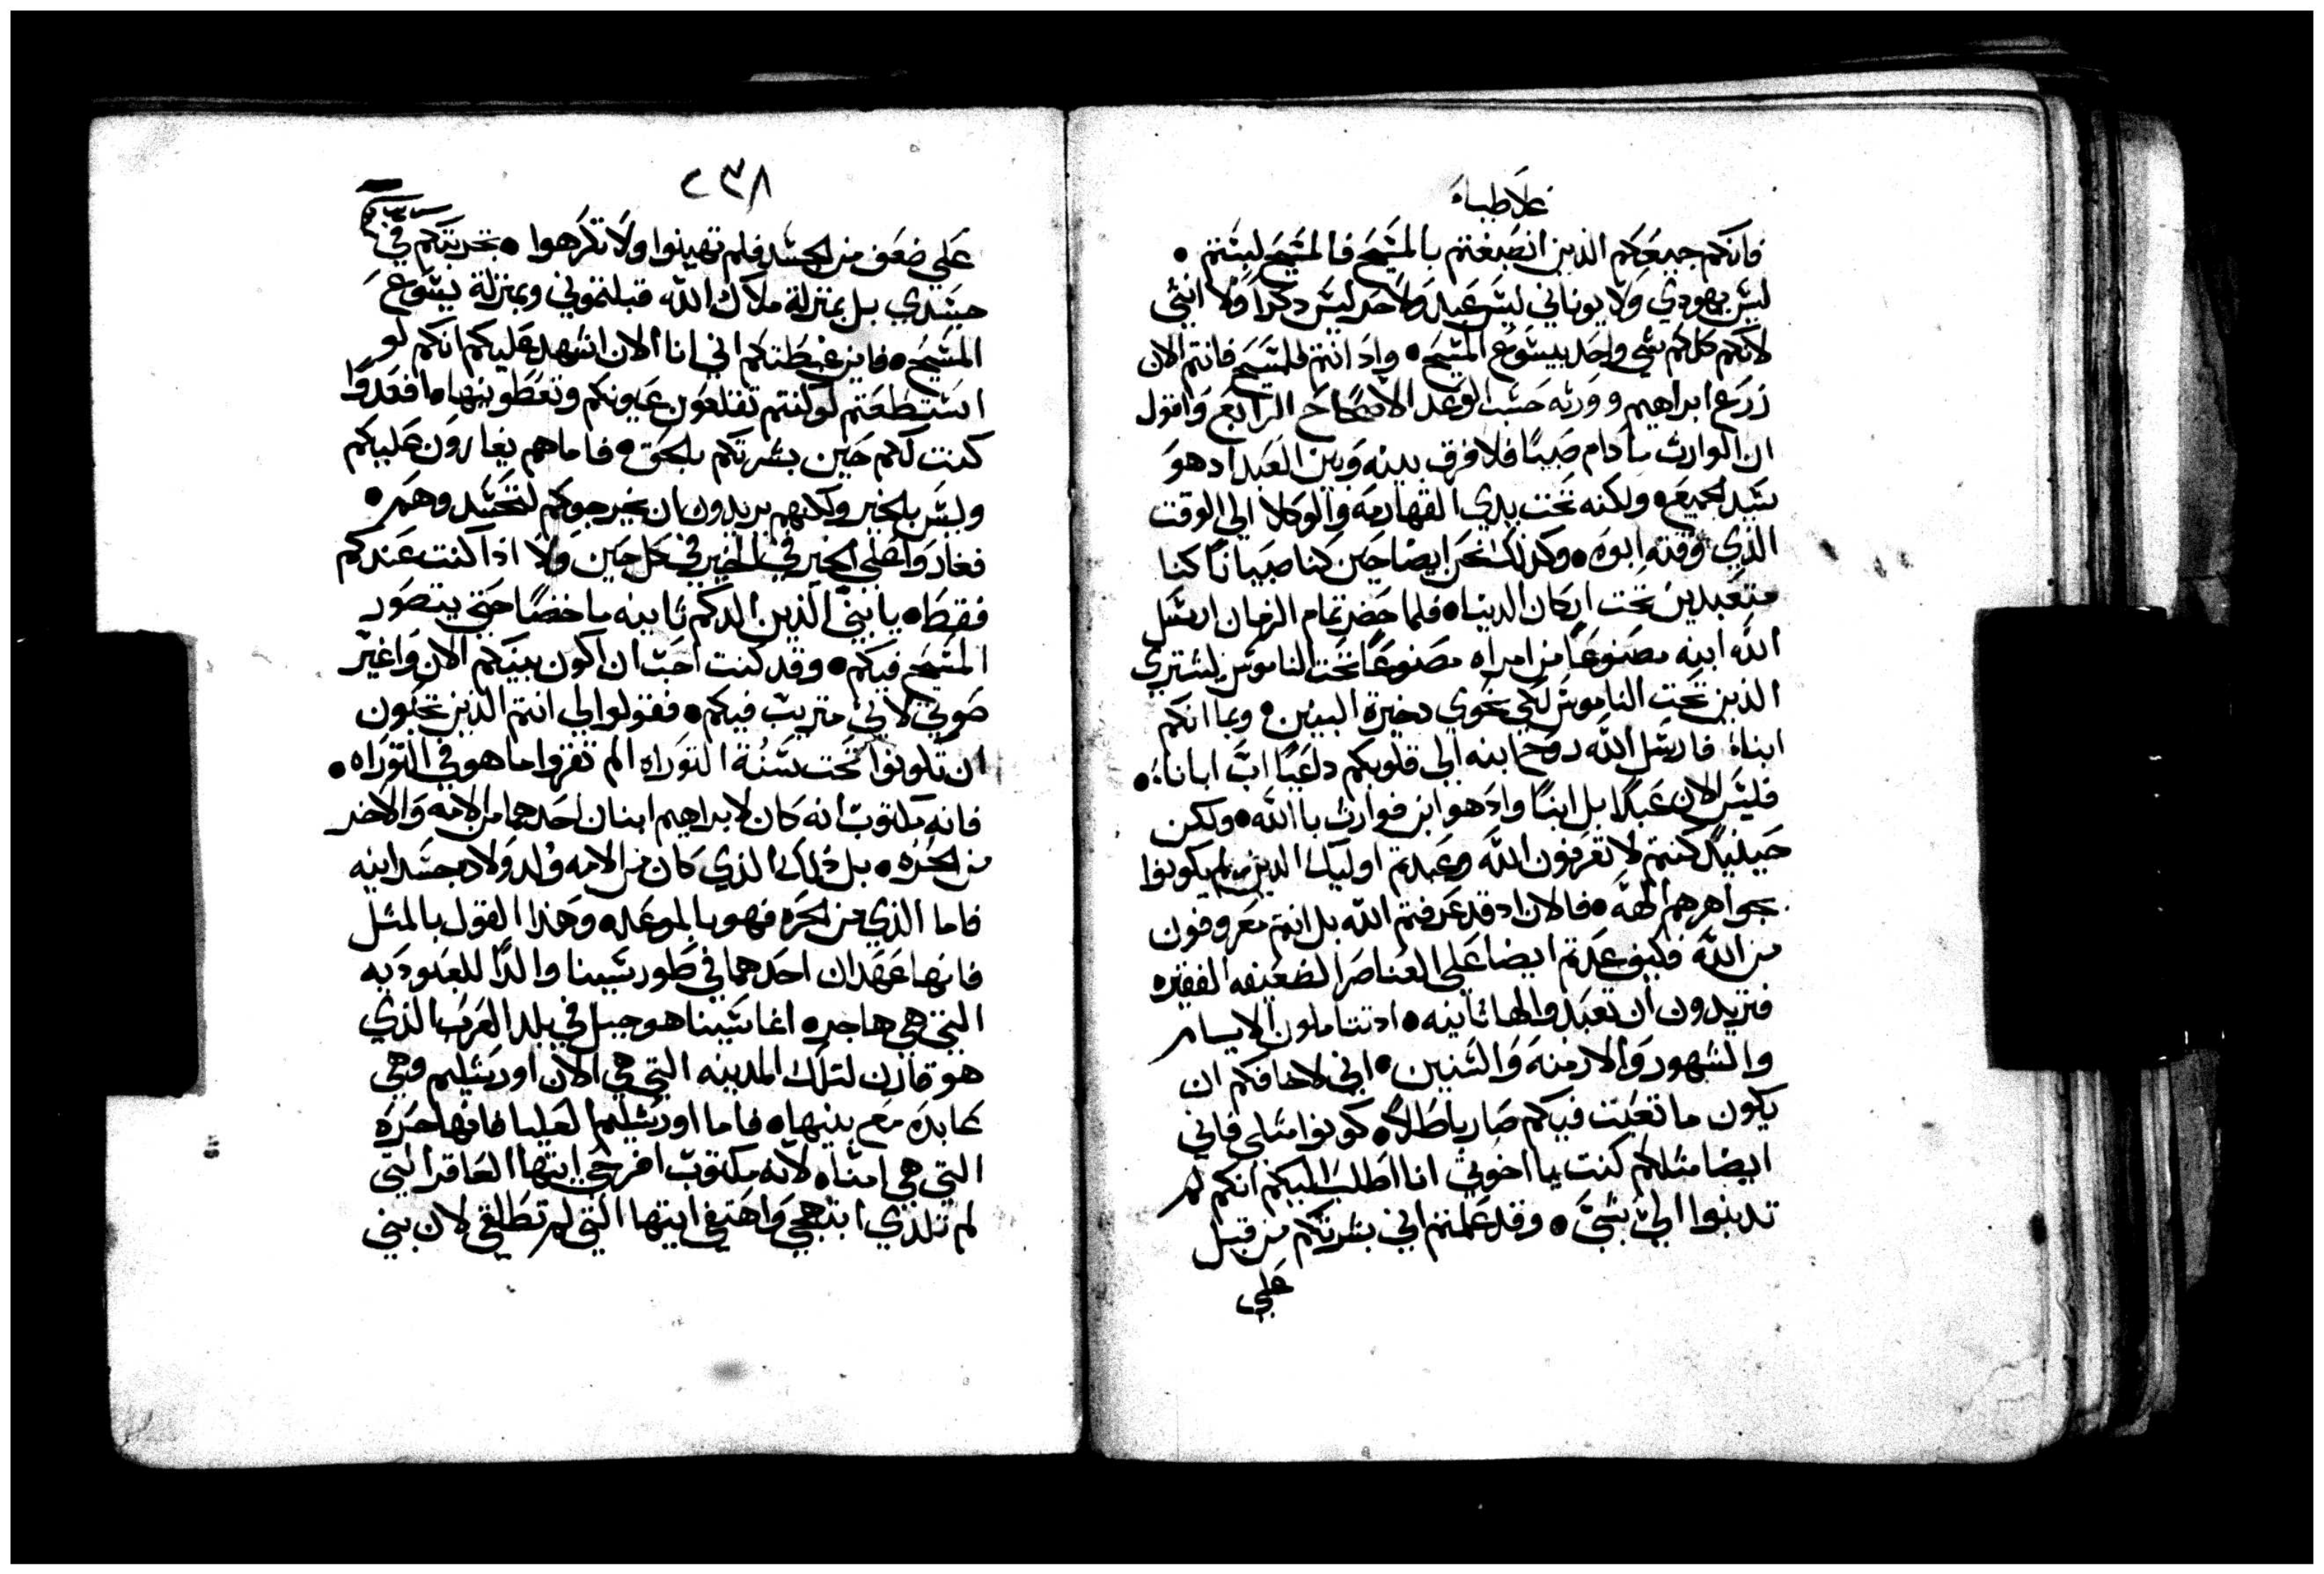 غلاطيه
فانكم جميعكم الذين انصبغتم بالمسَيح فالمسَيح لبسَتم •
ليسَ يهودي ولا يوناني ليسَ عبد ولا حر ليسَ دكراً ولا انثى
لانكم كلكم شي واحد بيسَوع المسَيح • واد انتم للمسَيح فانتم الان
زرع ابراهيم وورثه حسَب الوعد الاصحاح الرابع واقول
ان الوارث ما دام صبيًا فلا فرق بينه وبين العبد اد هو
سَيد الجميع • ولكنه تحت يدي القهارمه والوكلا الي الوقت
الذي وقته ابوه • وكذلك نحن ايضا حين كنا صبيانًا كنا
متعبدين تحت اركان الدنيا • فلما حضر تمام الزمان ارسَل
الله ابنه مصنوعًا من امراه مصنوعًا تحت الناموسَ ليشتري
الذين تحت الناموسَ لكي نحوي دخيرة البنين • وبما انكم
ابناءً فارسَل الله روح ابنه الي قلوبكم داعيًا ابَ ابانا •
فليسَ الان عبدًا بل ابنًا واد هو ابن فوارث باالله • ولكن
حينيدٍ كنتم لا تعرفون الله وعبدتم اوليك الدين لم يكونوا
بجواهرهم الهه • فالان اد قد عرفتم الله بل انتم معروفون
من الله فكيف عدتم ايضا علي العناصر الضعيفه الفقيره
فتريدون ان تعبدوا لها ثانيه • اد تتاملون الايام
والشهور والازمنه والسَنين • اني لاخافكم ان
يكون ما تعبت فيكم صار باطلاً • كونوا مثلي فاني
ايضا مثلكم كنت يا اخوتي انا اطلب اليكم انكم لم
تدنبوا اليّ بشيَ • وقد علمتم اني بشرتكم من قبل
علي
٢٣٨
علي ضعف من الجسَد فلم تهينوا ولا تكرهوا • تجربتكم في
جسَدي بل بمنزلة ملاك الله قبلتموني وبمنزلة يسَوع
المسَيح • فاين غبطتكم اني انا الان اشهد عليكم انكم لو
استطعتم لو كنتم تقلعون عيونكم وتعطونيها ما فعدوًا
كنت لكم حين بشرتكم بالحق • فاما هم يغارون عليكم
وليسَ بالخير ولكنهم يريدون ان يخرجوكم لتحسَدوهم •
فغاروا علي الخير في الخير في كل حين ولا اذا كنت عندكم
فقط • يا بنيّ الذين الدكم ثانيه ماخضًا حتى يتصور
المسَيح فيكم • وقد كنت احب ان اكون بينكم الان واغيّر
صوتي لاني متريب فيكم • فقولوا لي انتم الذين تحبون
ان تكونوا تحت سَنُة التوراه الم تقروا ما هو في التوراه •
فانه مكتوب انه كان لابراهيم ابنان احدهما من الامه والاخر
من الحره • بل ذلك الذي كان من الامه ولد ولاده جسَدانيه
فاما الذي من الحره فهو بالموعد • وهذا القول بالمثل
فانها عهدان احدهما في طور سَينا والدًا للعبوديه
التي هي هاجره اغا سَينا هو جبل في بلد العرب الذي
هو قارن لتلك المدينه التي هي الان اورسَليم وهي
عابده مع بنيها • فاما اورسَليم العليا فانها حره
التي هي امنا • لانه مكتوب افرحي ايتها العاقر التي
لم تلدي ابتهجي واهتفي ايتها التي لم تطلقي لان بني